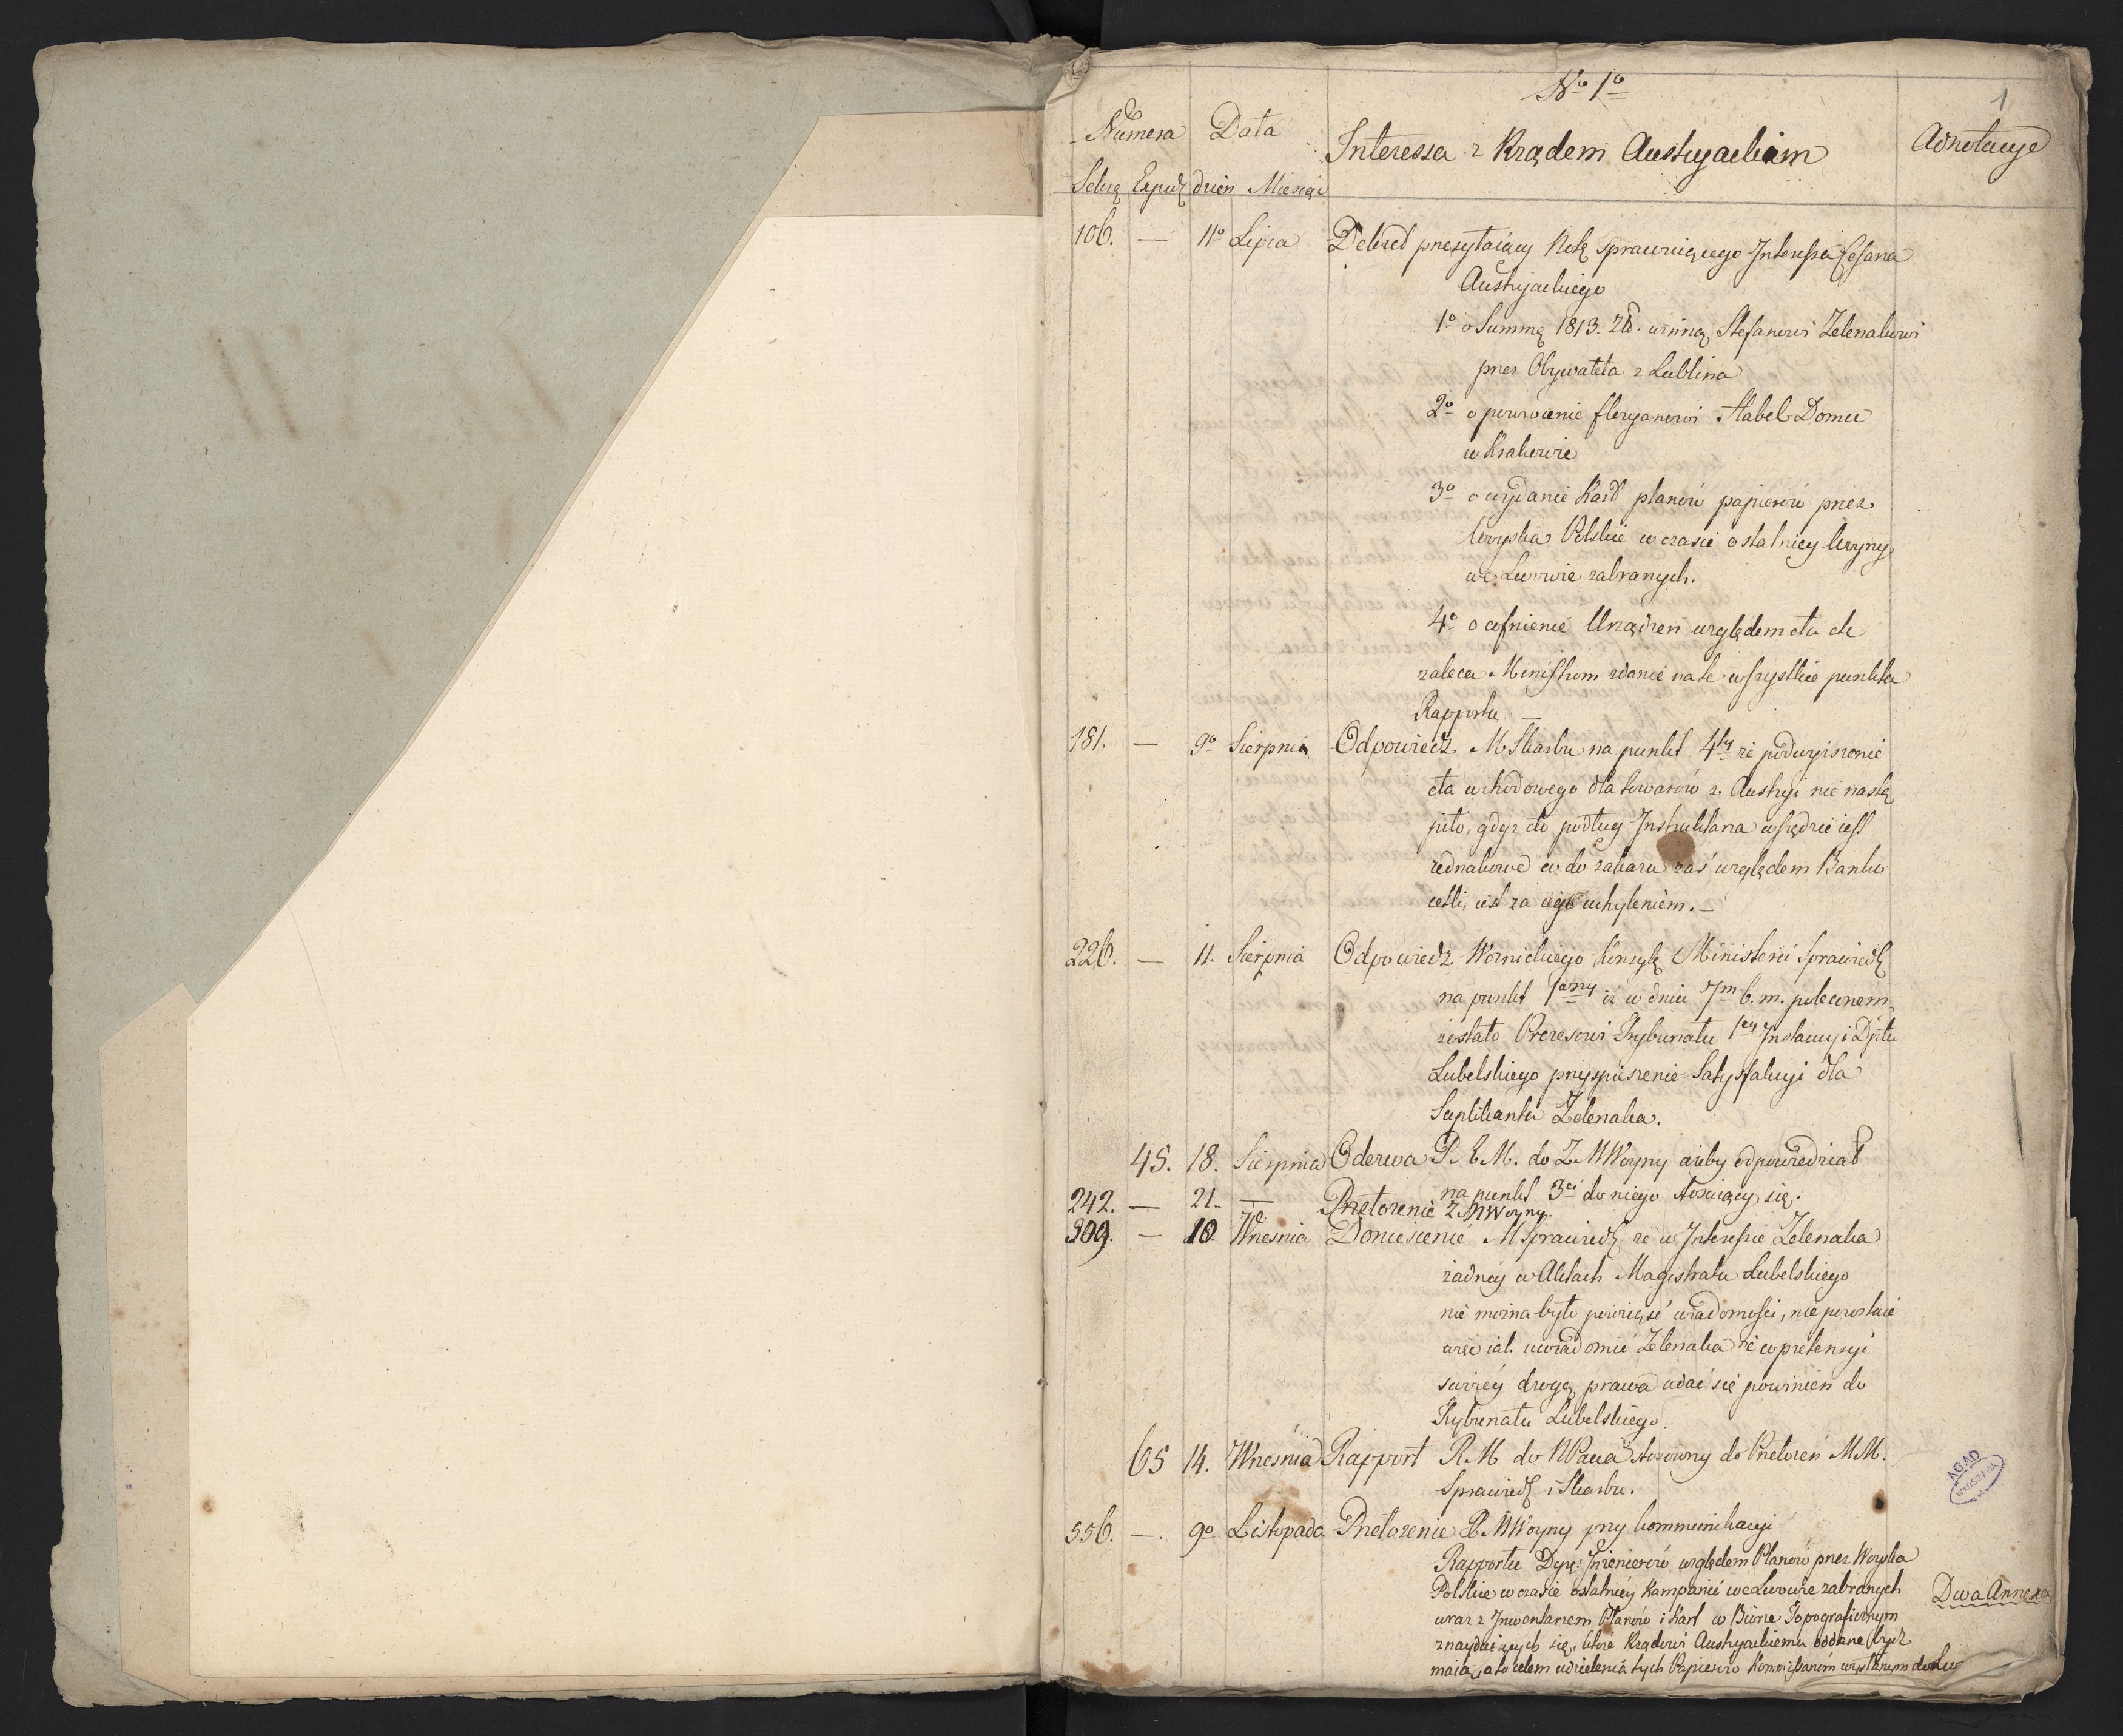 No 1o
1
Numera Data Interessa z Rządem Austryackim Adnotacye
Sekrę Exped dzień Miesiąc
106. — 11o Lipca Dekret przesyłaiący Notę sprawuiącego Interessa Cesarza
Austryackiego
1o o Summę 1813. Zł. winną Stefanowi Zelenakowi
przez Obywatela z Lublina
2o o powrócenie Floryanowi Habel Domu
w Krakowie
3o o wydanie Kart planów papierów przez
Woyska Polskie w czasie ostatniey Woyny
we Lwowie zabranych.
4o o cofnienie Urządzeń względem cła etc
zaleca Ministrom zdanie na te wszystkie punkta
Rapportu —
181. — 9o Sierpnia Odpowiedź M Skarbu na punkt 4ty że podwyższenie
cła wchodowego dla towarów z Austryi nie nastą
piło, gdyż cło podług Instruktarza wszędzie iest
iednakowe co do zakazu zaś względem Banko
cetli, iest za iego uchyleniem. —
226. — 11. Sierpnia Odpowiedź Woźnickiego Konsyl Ministerii Sprawiedl
na punkt 1szy iż w dniu 7m b. m. poleconem
zostało Prezesowi Trybunału 1ey Instancyi Dptu
Lubelskiego przyspieszenie Satysfakcyi dla
Suplikanta Zelenaka.
45. 18. Sierpnia Odezwa P. R. M. do Z. M Woyny ażeby odpowiedział
na punkt 3ci do niego stosuiący się.
242. — 21. — Przełożenie Z M Woyny.
309. — 10. Września Doniesienie M Sprawiedl że w Interessie Zelenaka
żadney w Aktach Magistratu Lubelskiego
nie można było powziąść wiadomości, nie pozostaie
więc iak uwiadomić Zelenaka że w pretensyi
swoiey drogą prawa udać się powinien do
Trybunału Lubelskiego.
65 14. Września Rapport R. M do N Pana stosowny do Przełożeń M M.
Sprawiedl i Skarbu.
556. —. 9o Listopada Przełożenie Z. M Woyny przy kommunikacyi
Rapportu Dyre: Inienierów względem Planów przez Woyska
Polskie w czasie ostatniey Kampanii we Lwowie zabranych Dwa Annexa
wraz z Inwentarzem Planów i Kart w Biurze Topograficznym
znayduiących się, które Rządowi Austryackiemu oddane być
maią, a to celem udzielenia tych Papierów Kommissarzom wysłanym do Lw
AGAD
WARSZAWA